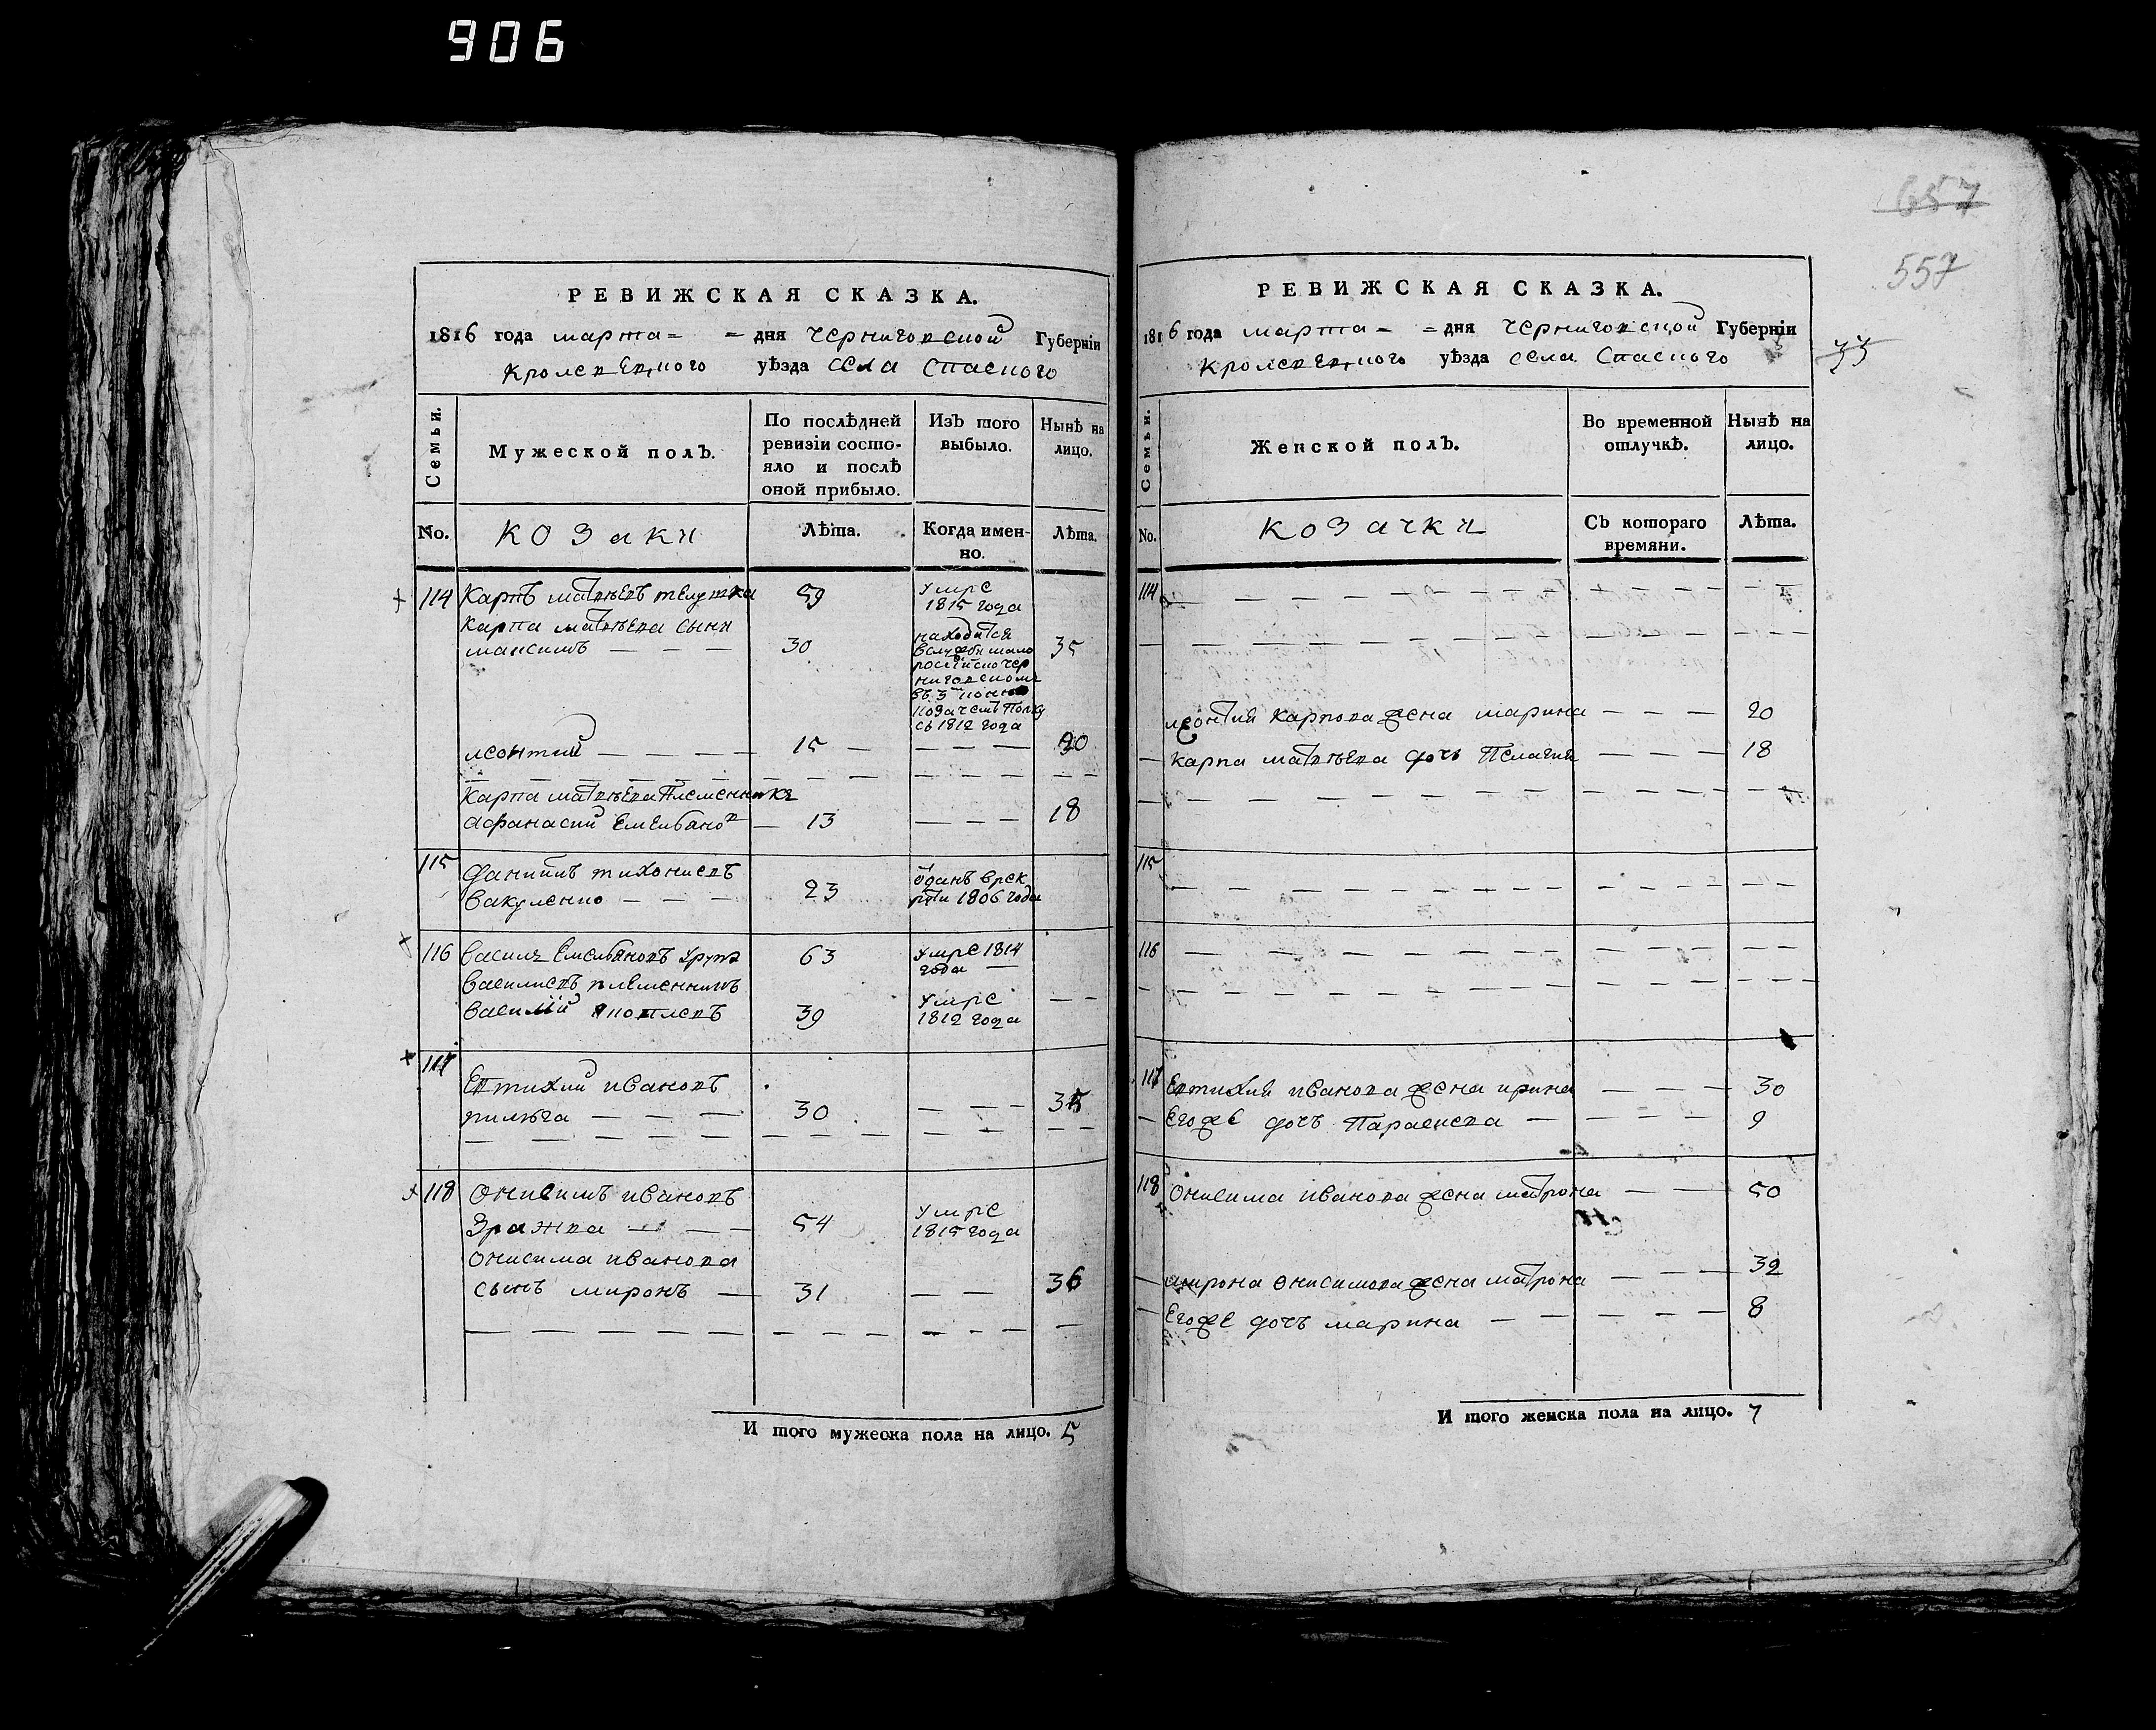 906
РЕВИЖСКАЯ СКАЗКА.
1816 года марта = = дня Черниговской Губерніи
Кролевецкого уѣзда села Спаского
Семьи.
Мужеской полЪ.
По послѣдней ревизіи состо-
яло и послѣ
оной прибыло.
ИзЪ того
выбыло.
Нынѣ на
лицо.
No.
козаки
Лѣта.
Когда имен-
но.
Лѣта.
114 Карпъ матвѣевъ 59 умре
1815 года
Карпа матвѣева сыни
максимъ 30 находится
в службѣ мало
росийско чер
ниговскомъ
въ 3м конно
козачемъ полку
съ 1812 года 35
леонтий 15 20
Карпа матвѣева племенникъ
афанасий Емельяновъ 13 18
115 Данийлъ тихониевъ
вакуленко 23 оданъ врек
руты 1806 года
116 василь Емельяновъ 63 умре 1814
года
василиевъ племенникъ
василий 39 умре
1812 года
117 Евтихий ивановъ
30 35
118 Онисимъ ивановъ
Зражва 54 умре
1815 года
Онисима иванова
сынъ миронъ 31 36
И того мужеска пола на лицо. 5
657
557
РЕВИЖСКАЯ СКАЗКА.
1816 года марта = = дня Черниговской Губерніи
Кролевецкого уѣзда села Спаского
Семьи.
Женской полЪ.
Во временной
отлучкѣ.
Нынѣ на
лицо.
No.
козачки
СЪ котораго
времяни.
Лѣта.
114
леонтия карпова жена марина 20
карпа матвѣева дочь Пелагия 18
115
116
117 Евтихия иванова жена ирина 30
Егоже дочъ Параскева 9
118 Онисима иванова жена матрона 50
мирона онисимова жена матрона 32
Егоже дочъ марина 8
И того женска пола на лицо. 7